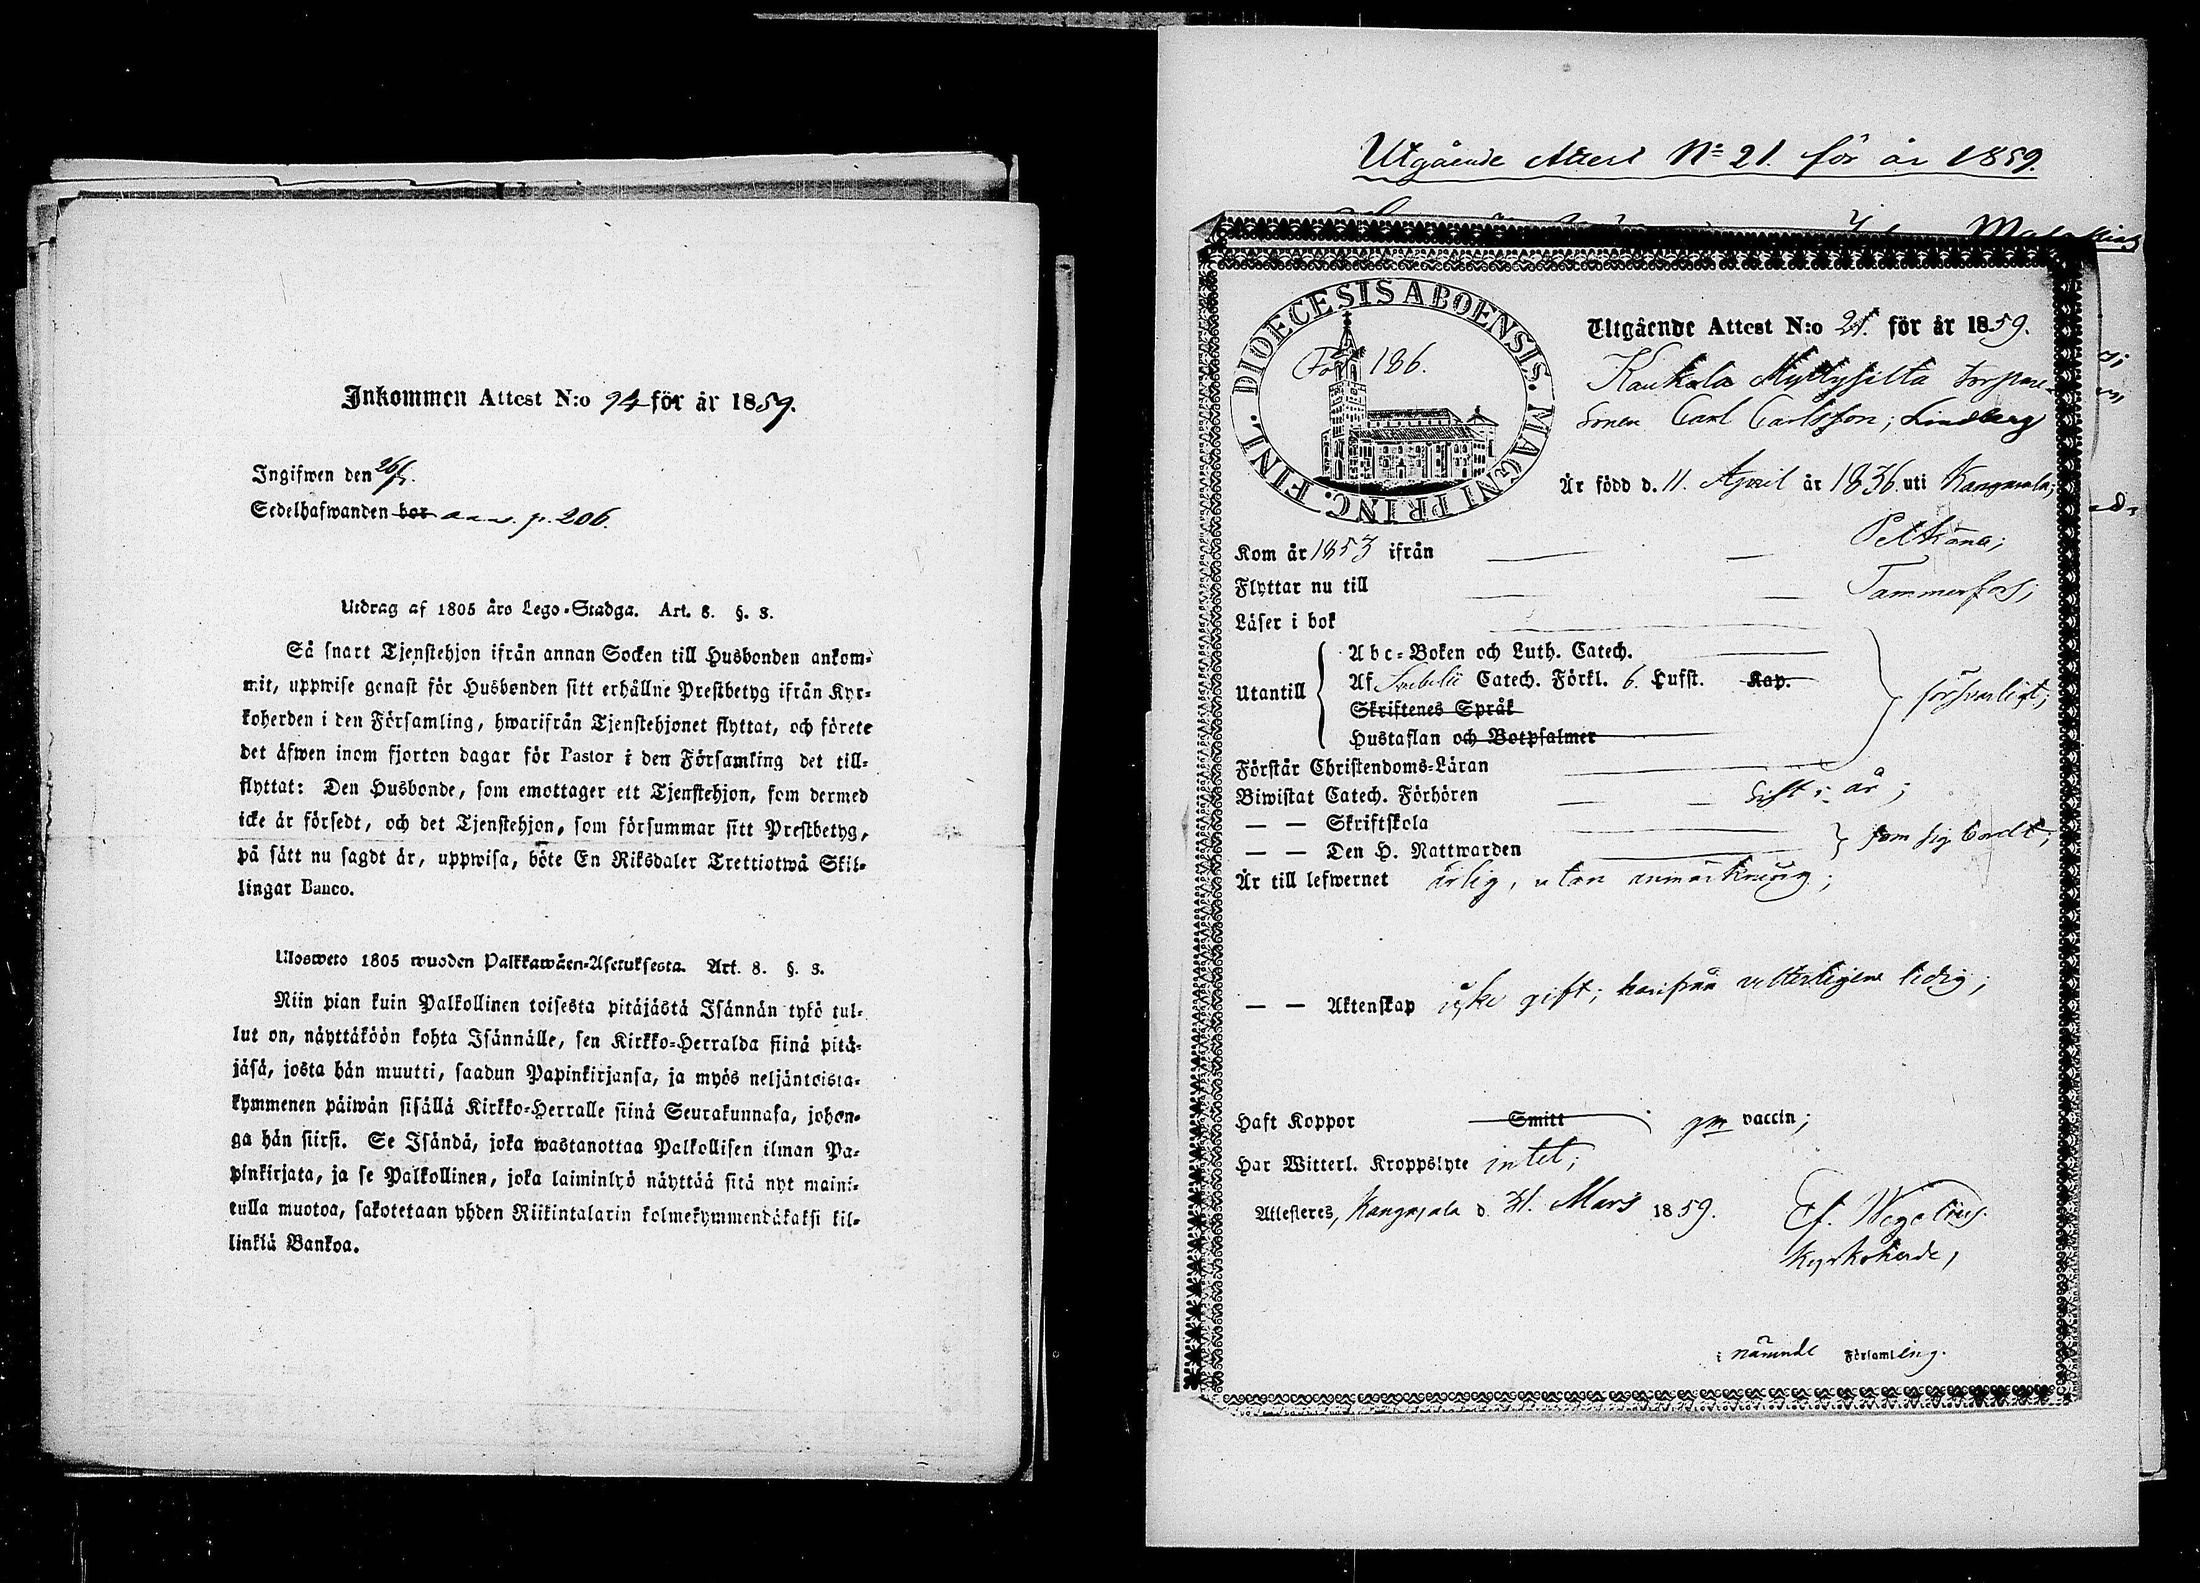 Inkommen Attest N:o 94 för år 1859.
Ingifwen den 26/5.
Sedelhafwanden bor p. 206.
Utdrag af 1805 års Lego-Stadga. Art. 8. §. 3.
Så snart Tjenstehjon ifrån annan Socken till Husbonden ankom-
mit, uppwise genast för Husbonden sitt erhållne Prestbetyg ifrån Kyr-
koherden i den Församling, hwarifrån Tjenstehjonet flyttat, och förete
det äfwen inom fjorton dagar för Pastor i den Församling det till-
flyttat: Den Husbonde, som emottager ett Tjenstehjon, som dermed
icke är försedt, och det Tjenstehjon, som försummar sitt Prestbetyg,
på sätt nu sagdt är, uppwisa, böte En Riksdaler Trettiotwå Skil-
lingar Banco.
Ulosweto 1805 wuoden Palkkawäen-Asetuksesta. Art. 8. §. 3.
Niin pian kuin Palkollinen toisesta pitäjästä Isännän tykö tul-
lut on, näyttäköön kohta Isännälle, sen Kirkko-Herralda siinä pitä-
jäsä, josta hän muutti, saadun Papinkirjansa, ja myös neljäntoista-
kymmenen päiwän sisällä Kirkko-Herralle siinä Seurakunnasa, johon-
ga hän siirsi. Se Isändä, joka wastanottaa Palkollisen ilman Pa-
pinkirjata, ja se Palkollinen, joka laiminlyö näyttää sitä nyt maini-
tulla muotoa, sakotetaan yhden Riikintalarin kolmekymmendäkaksi kil-
linkiä Bankoa.
Utgående Attest No 21. för år 1859.
DIOECESIS ABOENSIS. MAGNI PRINC. FINL.
Fol 186.
Utgående Attest N:o 21. för år 1859.
Kaukala Myllysilta torpare-
sonen Carl Carlsson; Lindberg
Är född d. 11. April år 1836. uti Kangasala;
Kom år 1853 ifrån Pelkäne;
Flyttar nu till Tammerfors;
Läser i bok
Utantill
Abc-Boken och Luth. Catech.
Af Svebelii Catech. Förkl. 6. Hufst. Kap.
Skriftenes Språk
Hustaflan och Botpsalmer
försvarligt;
Förstår Christendoms-Läran
Biwistat Catech. Förhören sist i år;
— — Skriftskola
— — Den H. Nattwarden
som sig bordt;
Är till lefwernet ärlig, utan anmärkning;
— — Äktenskap icke gift; härifrån vetterligen ledig;
Haft Koppor Smitt gm vaccin;
Har Witterl. Kroppslyte intet;
Attesteres, Kangasala d. 31. Mars 1859.
Ef. Wegelius.
Kyrkoherde,
i nämnde Församling.